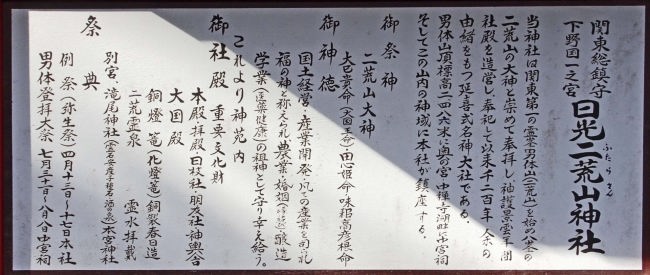 関東総鎮守
下野国一之宮
日光二荒山神社
ふたらさん
当神社は関東第一の霊峯男体山(二荒山)を始め八峯の
二荒山の大神と崇めて奉拝し、神護景雲年間
社殿を造営し、奉祀して以来千二百年余の
由緒をもつ延喜式名神大社である。
男体山頂標高二四八六米に奥宮、中禅寺湖畔に中宮祠
そしてこの山内の神域に本社が鎮座する。
御祭神
二荒山大神
大己貴命(大国主命)田心姫命 味耜高彦根命
御神徳
国土経営・産業開発・凡ての産業を司り
福の神と称えられ農業・婚姻
醸造
学業(医薬健康)の祖神として守り幸え給う。
これより神苑内
御社殿 重要文化財
本殿 拝殿 日枝社 朋友社 神輿舎
大国殿
銅燈篭(化燈篭)銅製春日造
二荒霊泉 霊水拝戴
別宮、滝尾神社
本宮神社
祭典
例祭(弥生祭)四月十三〜十七日本社
男体登拝大祭 七月三十一日〜八月八日中宮祠